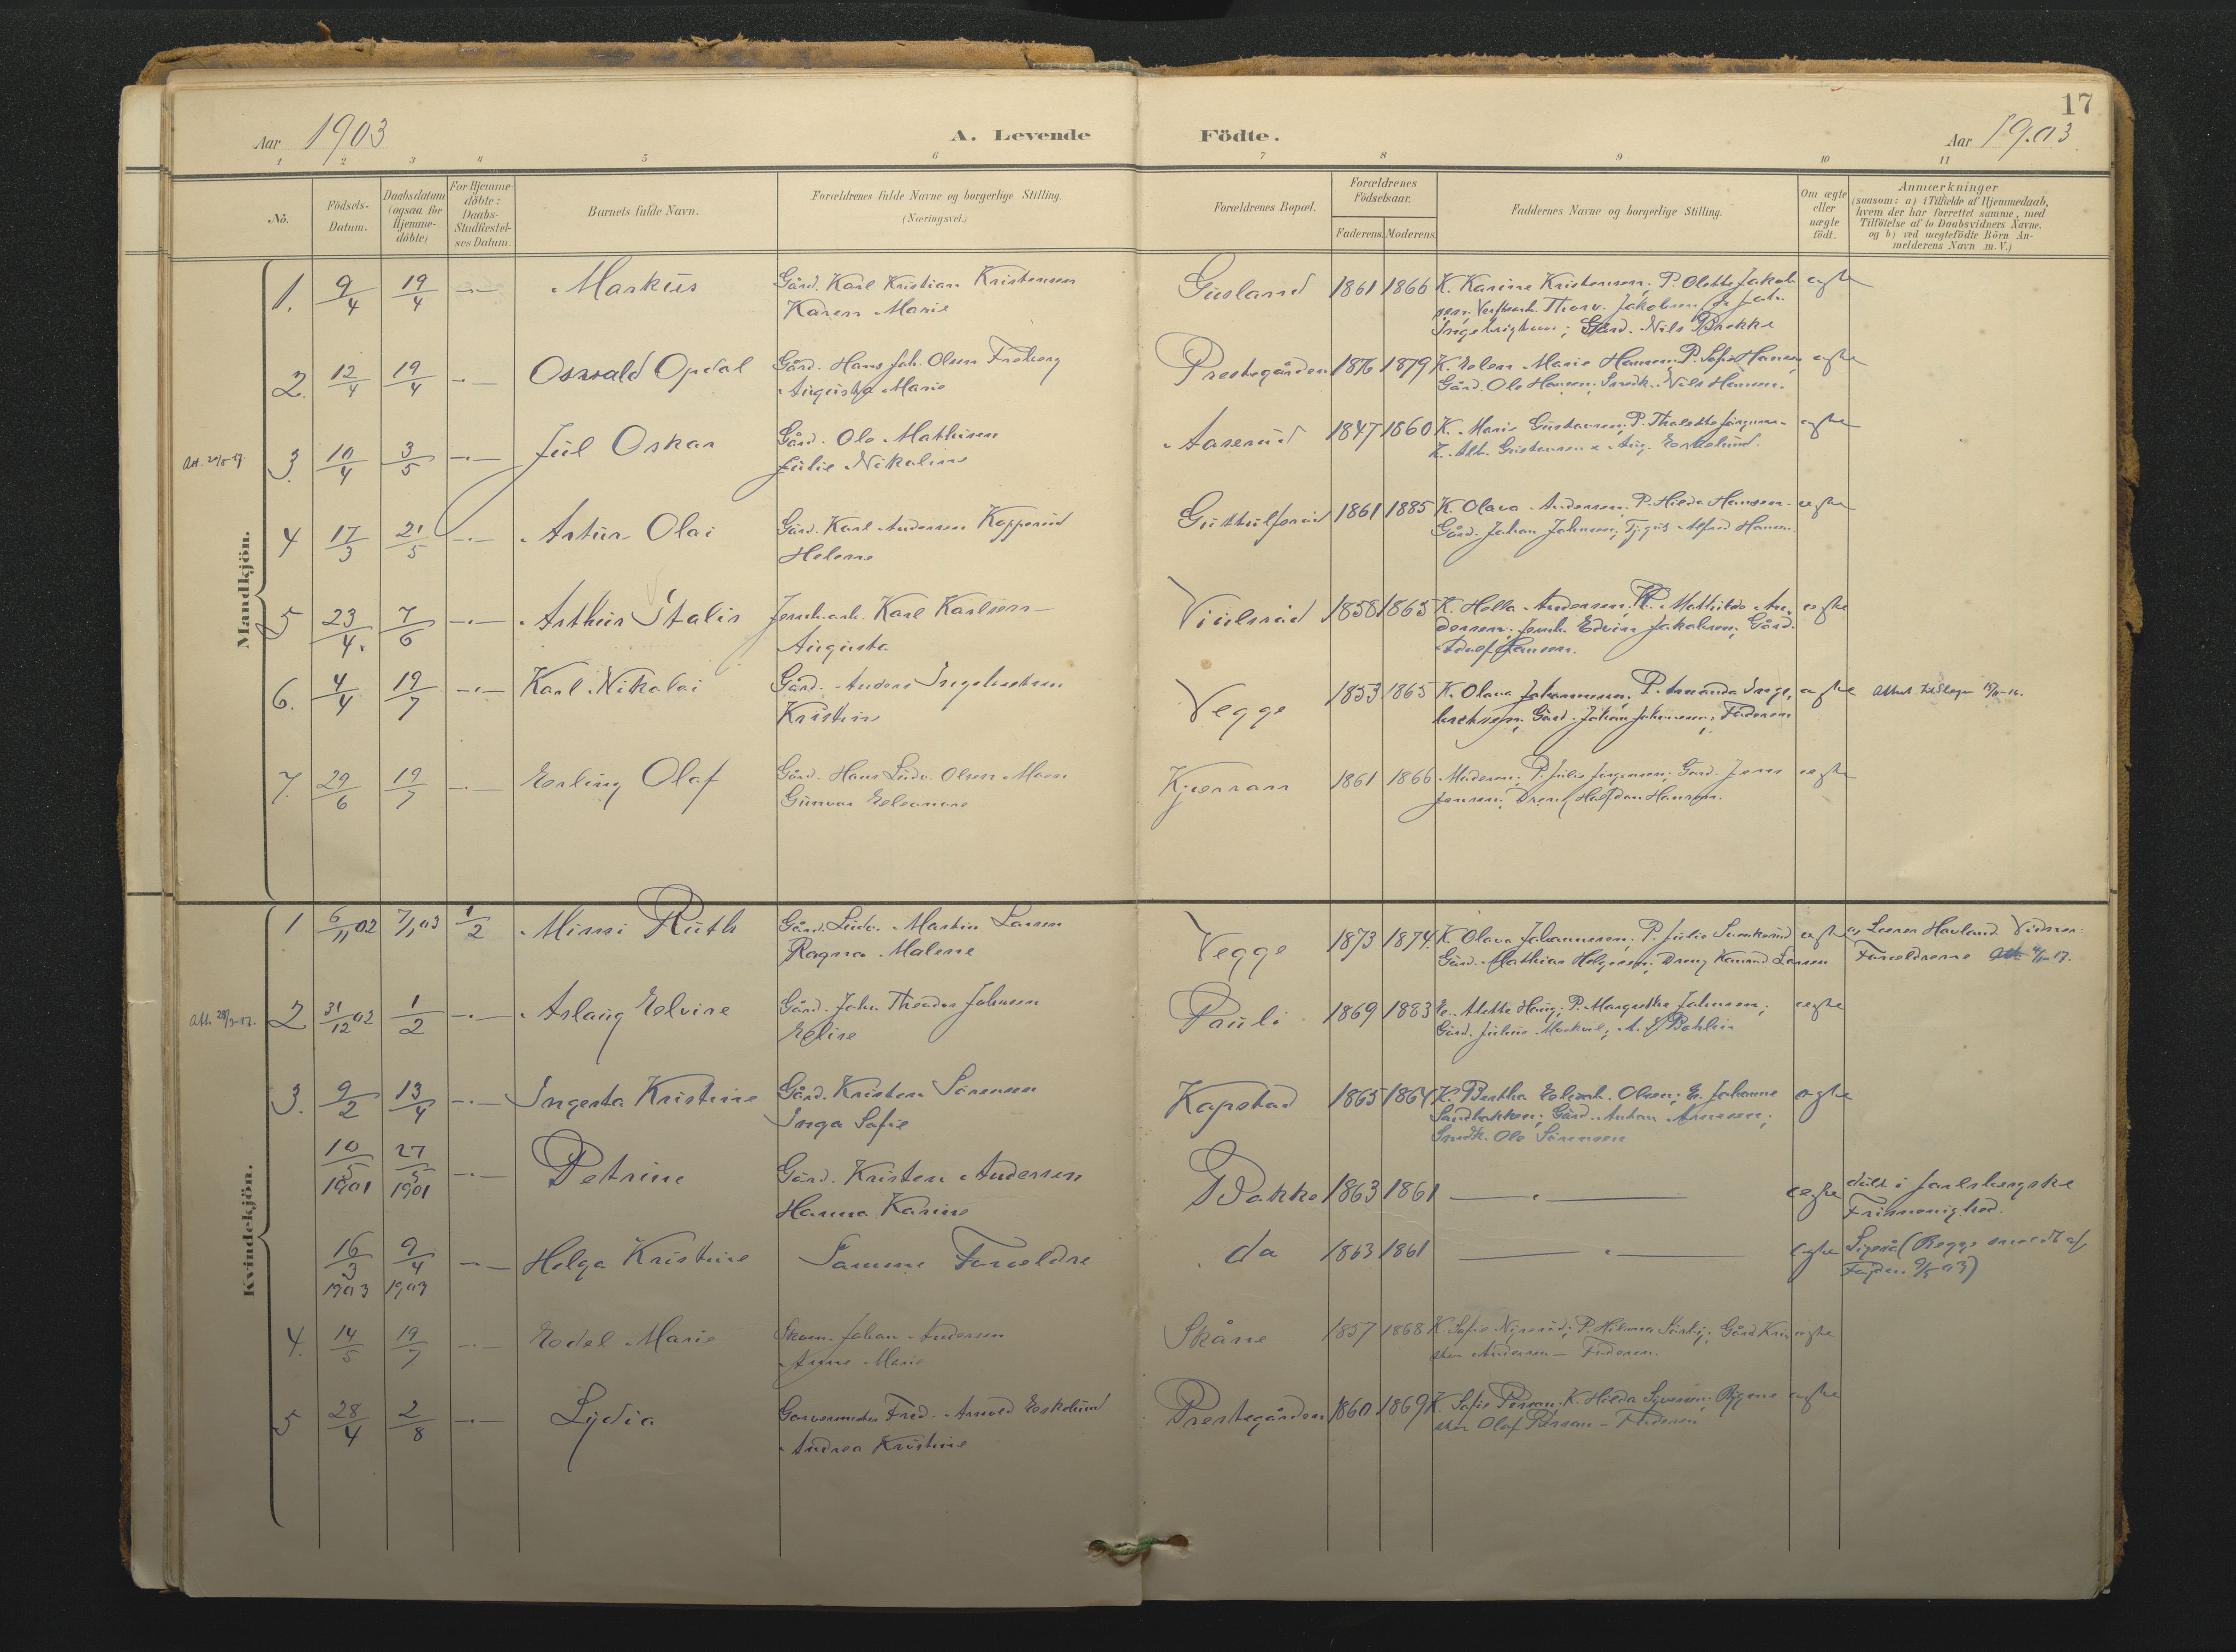 17
Aar 1903
A. Levende Födte.
Aar 1903
1 2 3 4 5 6 7 8 9 10 11
No.
Födsels-Datum.
Daabsdatum (ogsaa for Hjemme-döbte)
For Hjemme-döbte: Daabs-Stadfæstel-ses Datum
Barnets fulde Navn.
Forældrenes fulde Navne og borgerlige Stilling.
(Næringsvei.)
Forældrenes Bopæl.
Forældrenes Födselsaar.
Faderens. Moderens.
Faddernes Navne og borgerlige Stilling.
Om ægte eller uægte födt.
Anmærkninger
(saasom: a) i Tilfælde af Hjemmedaab,
hvem der har forrettet samme, med
Tilföielse af to Daabsvidners Navne.
og b) ved uægtefödte Börn An-
melderens Navn m. V.)
Mandkjön.
1. 9/4 19/4 -"- Markus
Gård. Karl Kristian Kristensen
Karen Marie
Gusland 1861 1866
K. Karine Kristensen; P. Olette Jakob-
sen; Thorv. Jakobsen
Ingebrigtsen; Gård. Nils Brekke
ægte
2. 12/4 19/4 -"- Oswald Opdal
Gård. Hans Joh. Olsen Freberg
Augusta Marie
Prestegården 1876 1879
K. Elen Marie Hansen; P. Sofie Hansen
Gård. Ole Hansen; Snedk. Nils Hansen.
ægte
3. 10/4 3/5 -"- Jul Oskar
Gård. Ole Mathisen
Julie Nikoline
Aaserud 1847 1860
K. Marie Gustavsen; P. Thalette Jörgensen
K. Alb. Gustavsen & Aug. Eskelund.
ægte
4 17/3 21/5 -"- Artur Olai
Gård. Karl Andersen Kopperud
Helene
1861 1885
K. Olava Andersen; P. Hilda Hansen
Gård. Johan Johnsen; Tjg. Alfred Hansen.
ægte
5 23/4. 7/6 -"- Arthur Italis
Jernb.arb. Karl Karlsen
Augusta
1858 1865
K. Helle Andersen; P. Mathilde An-
dersen; Jernb. Edvin Jakobsen; Gård.
Adolf Hansen.
ægte
6. 4/4 19/7 -"- Karl Nikolai
Gård. Anders Ingebretsen
Kristine
Vegge 1853 1865
K. Olava Johannesen; P. Amanda Inge-
bretsen; Gård. Johan Johannesen; Faderen
ægte
7. 29/6 19/7 -"- Erling Olaf
Gård. Hans Ludv. Olsen Moen
Gunvor Eleonore
Kjærran 1861 1866
Moderen; P. Julie Jörgensen; Gård. Jens
Jensen; Dreng Halfdan Hansen.
ægte
Kvindekjön.
1 6/11 02 7/1 03 1/2 Mimi Ruth
Gård. Ludv. Martin Larsen
Ragna Malene
Vegge 1873 1874.
K. Olava Johannesen; P. Julie
Gård. Mathias Helgesen; Dreng Konrad Larsen
ægte
Havland. Vidner:
Forældrene
2 31/12 02 1/2 -"- Aslaug Elvire
Gård. Johs. Theodor Johnsen
Elise
Pauli 1869 1883
E. Alette Haug; P. Margrethe Johnsen;
Gård. Julius
ægte
3. 9/2 13/4 -"- Ingerta Kristine
Gård. Kristen Sörensen
Inga Sofie
Kapstad 1865 1864
K. Bertha Elisab. Olsen; E. Johanne
Sandbakken; Gård. Anton Arnesen;
Snedk. Ole Sörensen
ægte
10/5 1901 27/5 1901 -"- Petrine
Gård. Kristen Andersen
Hanna Karine
Bakke 1863 1861 —"—
ægte
döbt i Jarlsbergske
Frimenighed.
16/3 1903 9/4 1903 -"- Helga Kristine
Samme Forældre
do 1863 1861 —"—
ægte
Ligeså (Begge meldt af
Faderen 9/5 03)
4. 14/5 19/7 -"- Eodel Marie
Skom. Johan Andersen
Anne Marie
Skåne 1857 1868
K. Sofie; P. Hilma; Gård Kri-
sten Andersen — Faderen.
ægte
5 28/4 2/8 -"- Lydia
Garvermester Fred. Arnold Eskelund
Andrea Kristine
Prestegården 1860 1869
K. Sofie Persson; K. Hilda Syversen; Bygme-
ster Olaf Persson — Faderen
ægte